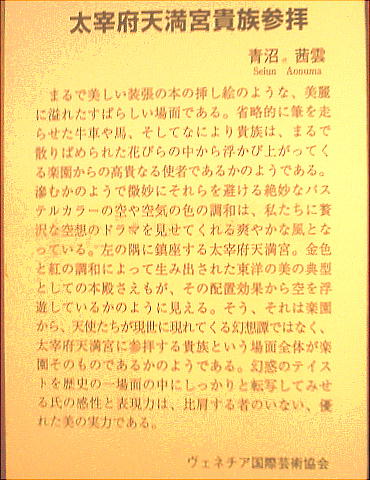 太宰府天満宮貴族参拝
青沼 茜雲
Seiun Aonuma
まるで美しい装張の本の挿し絵のような、美麗
に溢れたすばらしい場面である。省略的に筆を走
らせた牛車や馬、そしてなにより貴族は、まるで
散りばめられた花びらの中から浮かび上がってく
る楽園からの高貴なる使者であるかのようである。
滲むかのようで微妙にそれらを避ける絶妙なパス
テルカラーの空や空気の色の調和は、私たちに贅
沢な空想のドラマを見せてくれる爽やかな風とな
っている。左の隅に鎮座する太宰府天満宮。金色
と紅の調和によって生み出された東洋の美の典型
としての本殿さえもが、その配置効果から空を浮
遊しているかのように見える。そう、それは楽園
から、天使たちが現世に現れてくる幻想譚ではなく、
太宰府天満宮に参拝する貴族という場面全体が楽
園そのものであるかのようである。幻惑のテイス
トを歴史の一場面の中にしっかりと転写してみせ
る氏の感性と表現力は、比肩する者のいない、優
れた美の実力である。
ヴェネチア国際芸術協会